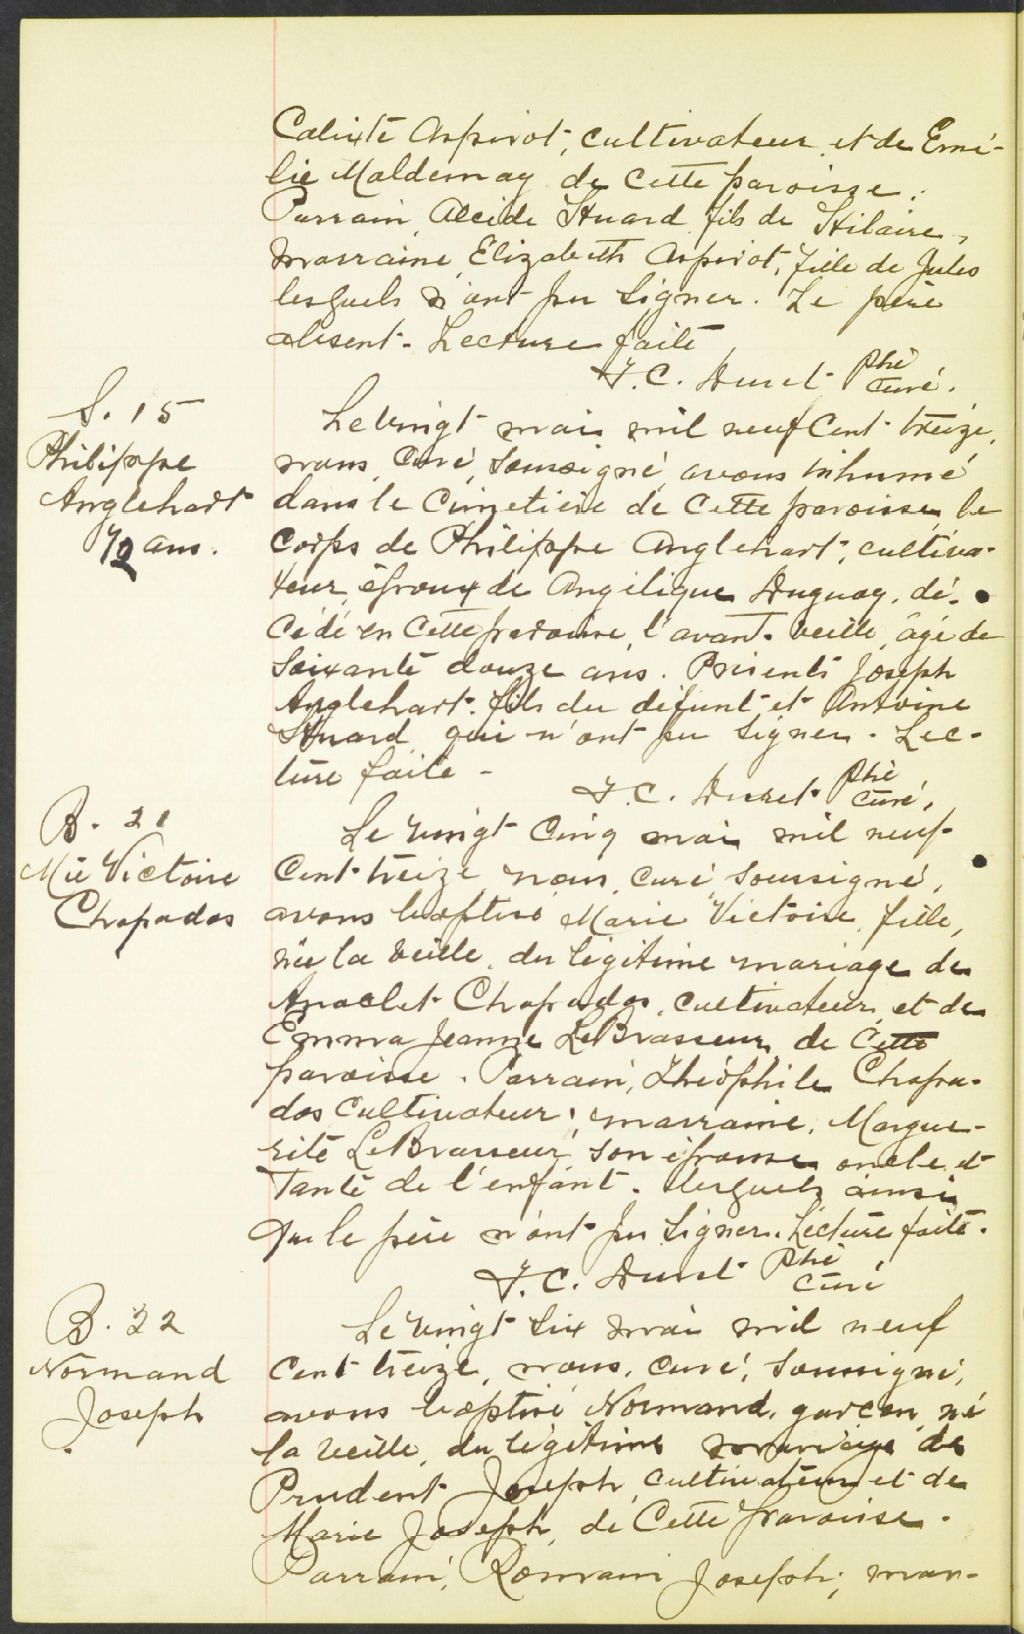 Calixte Aspirot, cultivateur et de Emé-
lie Maldemay de cette paroisse.
Parrain Alcide Huard fils de Hilaire,
marraine Elizabeth Aspirot, fille de Jules
lesquels n'ont pu signer. Le père
absent. Lecture faite
J. C. Huret Ptre
Curé.
S. 15
Philippe
Anglehart
72 ans.
Le vingt mai mil neuf cent treize,
nous, curé, soussigné avons inhumé
dans le cimetière de cette paroisse le
corps de Philippe Anglehart, cultiva-
teur, époux de Angélique Huguay, dé-
cédé en cette paroisse l'avant-veille, âgé de
soixante douze ans. Présents Joseph
Anglehart fils du défunt et Antoine
Huard qui n'ont pu signer. Lec-
ture faite -
J. C. Huret Ptre
curé,
B. 21
Mie Victoire
Chapados
Le vingt cinq mai mil neuf
cent treize nous, curé soussigné,
avons baptisé Marie Victoire, fille,
née la veille, du légitime mariage de
Anaclet Chapados, cultivateur, et de
Emma Jeanne LeBrasseur, de cette
paroisse. Parrain, Théophile Chapa-
dos cultivateur; marraine, Margue-
rite LeBrasseur son épouse oncle et
tante de l'enfant. lesquels ainsi
que le père n'ont pu signer. Lecture faite.
J. C. Huret Ptre
curé
B. 22
Normand
Joseph
Le vingt six mai mil neuf
cent treize, nous, curé, soussigné,
avons baptisé Normand, garçon, né
la veille, du légitime mariage de
Prudent Joseph, cultivateur et de
Marie Joseph, de cette paroisse.
Parrain, Romain Joseph; mar-